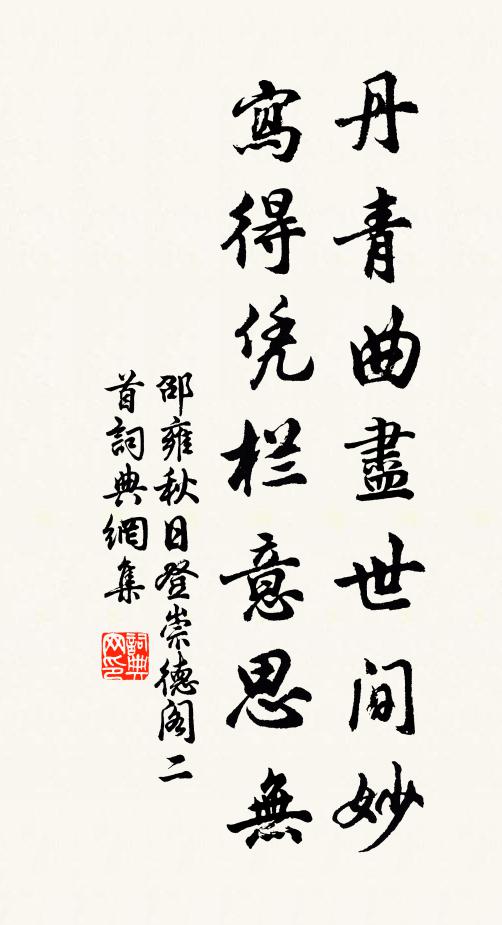 丹青曲盡世间妙
寫得凭栏意思無
邵雍秋日登崇德阁二
首詞典網集
詞典
网印